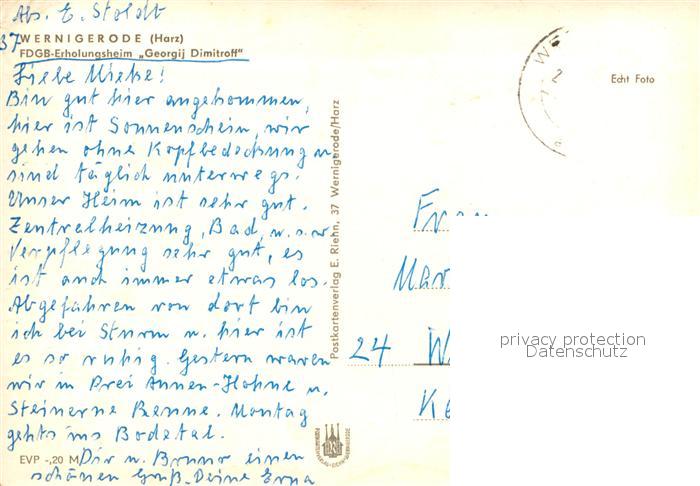 Abs. E. Stoldt
37 WERNIGERODE (Harz)
FDGB-Erholungsheim „Georgij Dimitroff"
Liebe Mieke!
Bin gut hier angekommen,
hier ist Sonnenschein, wir
gehen ohne Kopfbedeckung u.
sind täglich unterwegs.
Unser Heim ist sehr gut.
Zentralheizung, Bad, u.s.w.
Verpflegung sehr gut, es
ist auch immer etwas los.
Abgefahren von dort bin
ich bei Sturm u. hier ist
es so ruhig. Gestern waren
wir in Drei Annen-Hohne u.
Steinerne Renne. Montag
gehts ins Bodetal.
EVP -,20 M Dir u. Bruno einen
schönen Gruß. Deine Erna
Postkartenverlag E. Riehn, 37 Wernigerode/Harz
Echt Foto
Mar
24 W
privacy protection
Datenschutz